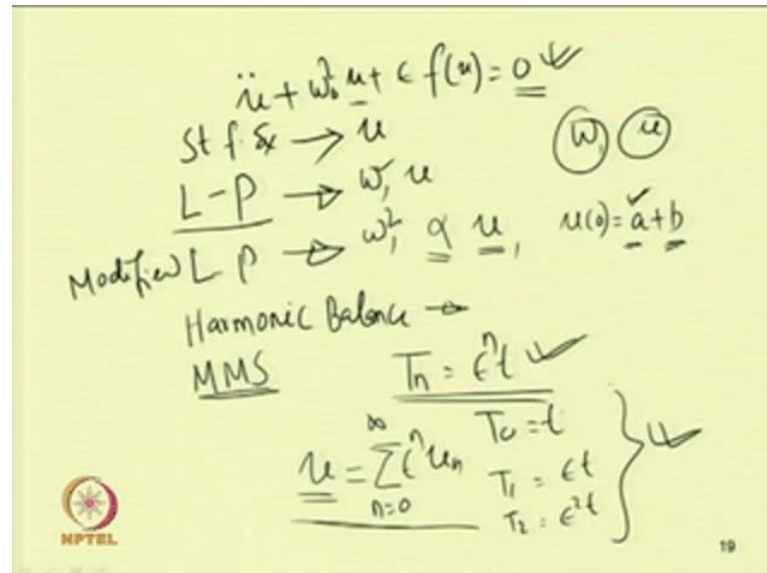 ü + ω₀² u + ε f(u) = 0
St f. Ex → u
ω, u
L-P → ω, u
Modified L P → ω², α u, u(0) = a + b
Harmonic Balance →
MMS Tn = εⁿt
T0 = t
u = ∞ Σ n=0 εⁿ un T1 = εt
T2 = ε²t
NPTEL
19